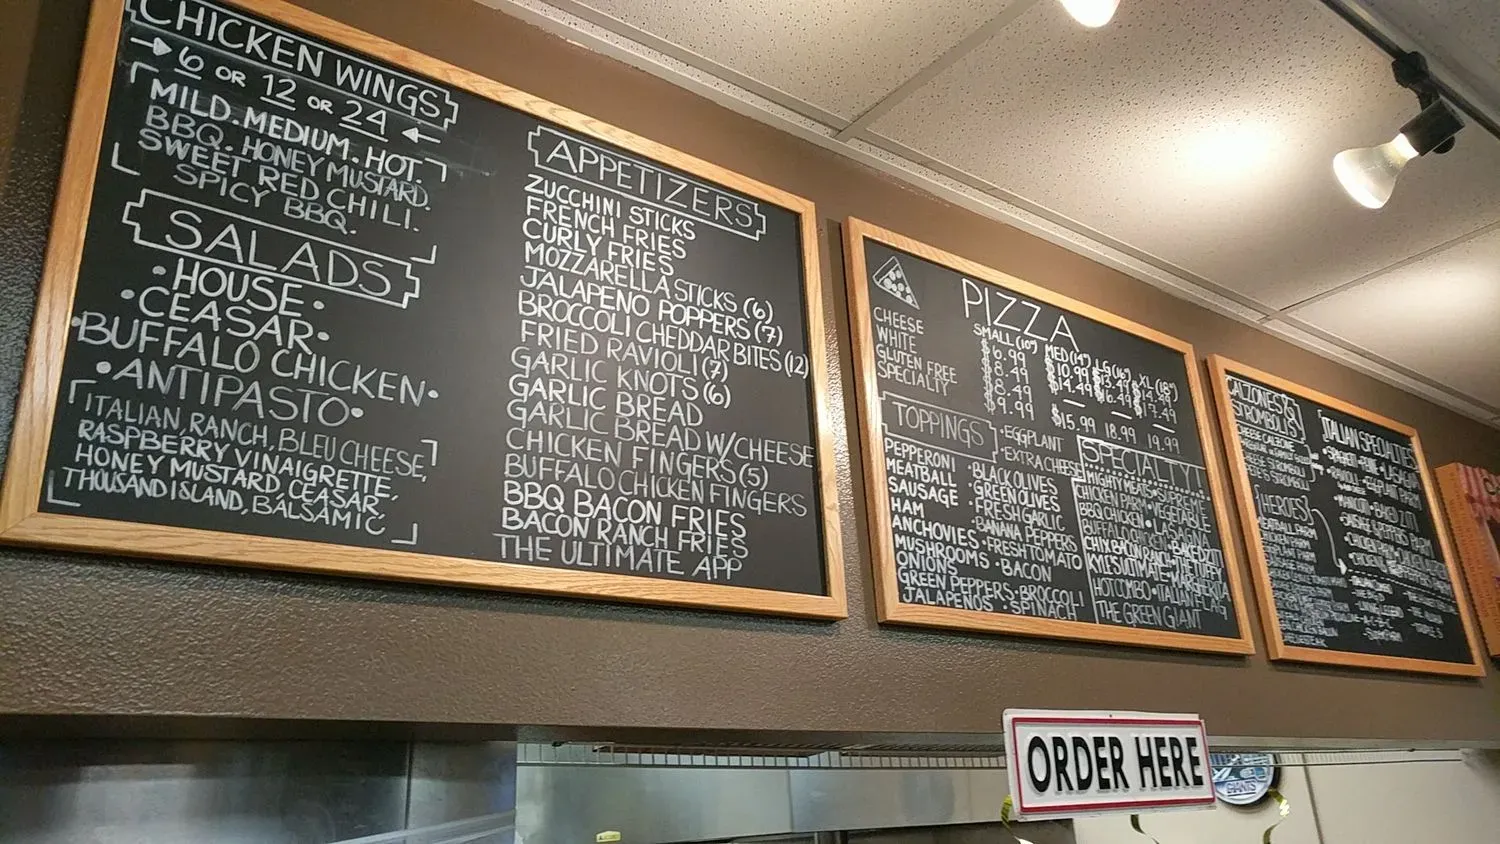 CHICKEN WINGS
6 OR 12 OR 24
MILD. MEDIUM. HOT.
BBQ. HONEY MUSTARD.
SWEET RED CHILI.
SPICY BBQ.
SALADS
• HOUSE •
• CEASAR •
• BUFFALO CHICKEN •
• ANTIPASTO •
ITALIAN, RANCH, BLEU CHEESE,
RASPBERRY VINAIGRETTE,
HONEY MUSTARD, CEASAR,
THOUSAND ISLAND, BALSAMIC
APPETIZERS
ZUCCHINI STICKS
FRENCH FRIES
CURLY FRIES
MOZZARELLA STICKS (6)
JALAPENO POPPERS (7)
BROCCOLI CHEDDAR BITES (12)
FRIED RAVIOLI (7)
GARLIC KNOTS (6)
GARLIC BREAD
GARLIC BREAD W/CHEESE
CHICKEN FINGERS (5)
BUFFALO CHICKEN FINGERS
BBQ BACON FRIES
BACON RANCH FRIES
THE ULTIMATE APP
PIZZA
SMALL (10") MED (14") LG (16") XL (18")
CHEESE $6.99 $10.99 $13.49 $14.99
WHITE $8.49 $14.49 $16.49 $17.49
GLUTEN FREE $8.49 — — —
SPECIALTY $9.99 $15.99 18.99 19.99
TOPPINGS
• EGGPLANT
• EXTRA CHEESE
PEPPERONI • BLACK OLIVES
MEATBALL • GREEN OLIVES
SAUSAGE • FRESH GARLIC
HAM • BANANA PEPPERS
ANCHOVIES • FRESH TOMATO
MUSHROOMS • BACON
ONIONS
GREEN PEPPERS • BROCCOLI
JALAPENOS • SPINACH
SPECIALTY
MIGHTY MEATY • SUPREME
CHICKEN PARM • VEGETABLE
BBQ CHICKEN • LASAGNA
BUFFALO CHICKEN
CHIX BACON RANCH • BAKED ZITI
KYLE'S ULTIMATE • MARGHERITA
HOT COMBO • ITALIAN FLAG
THE GREEN GIANT
CALZONES &
STROMBOLIS
CHEESE CALZONE
HEROES
MEATBALL PARM
ITALIAN SPECIALTIES
• SPAGHETTI • LASAGNA
• RAVIOLI • EGGPLANT PARM
• MANICOTTI • BAKED ZITI
• SAUSAGE & PEPPERS PARM
• CHICKEN PARM
ORDER HERE
GIANTS